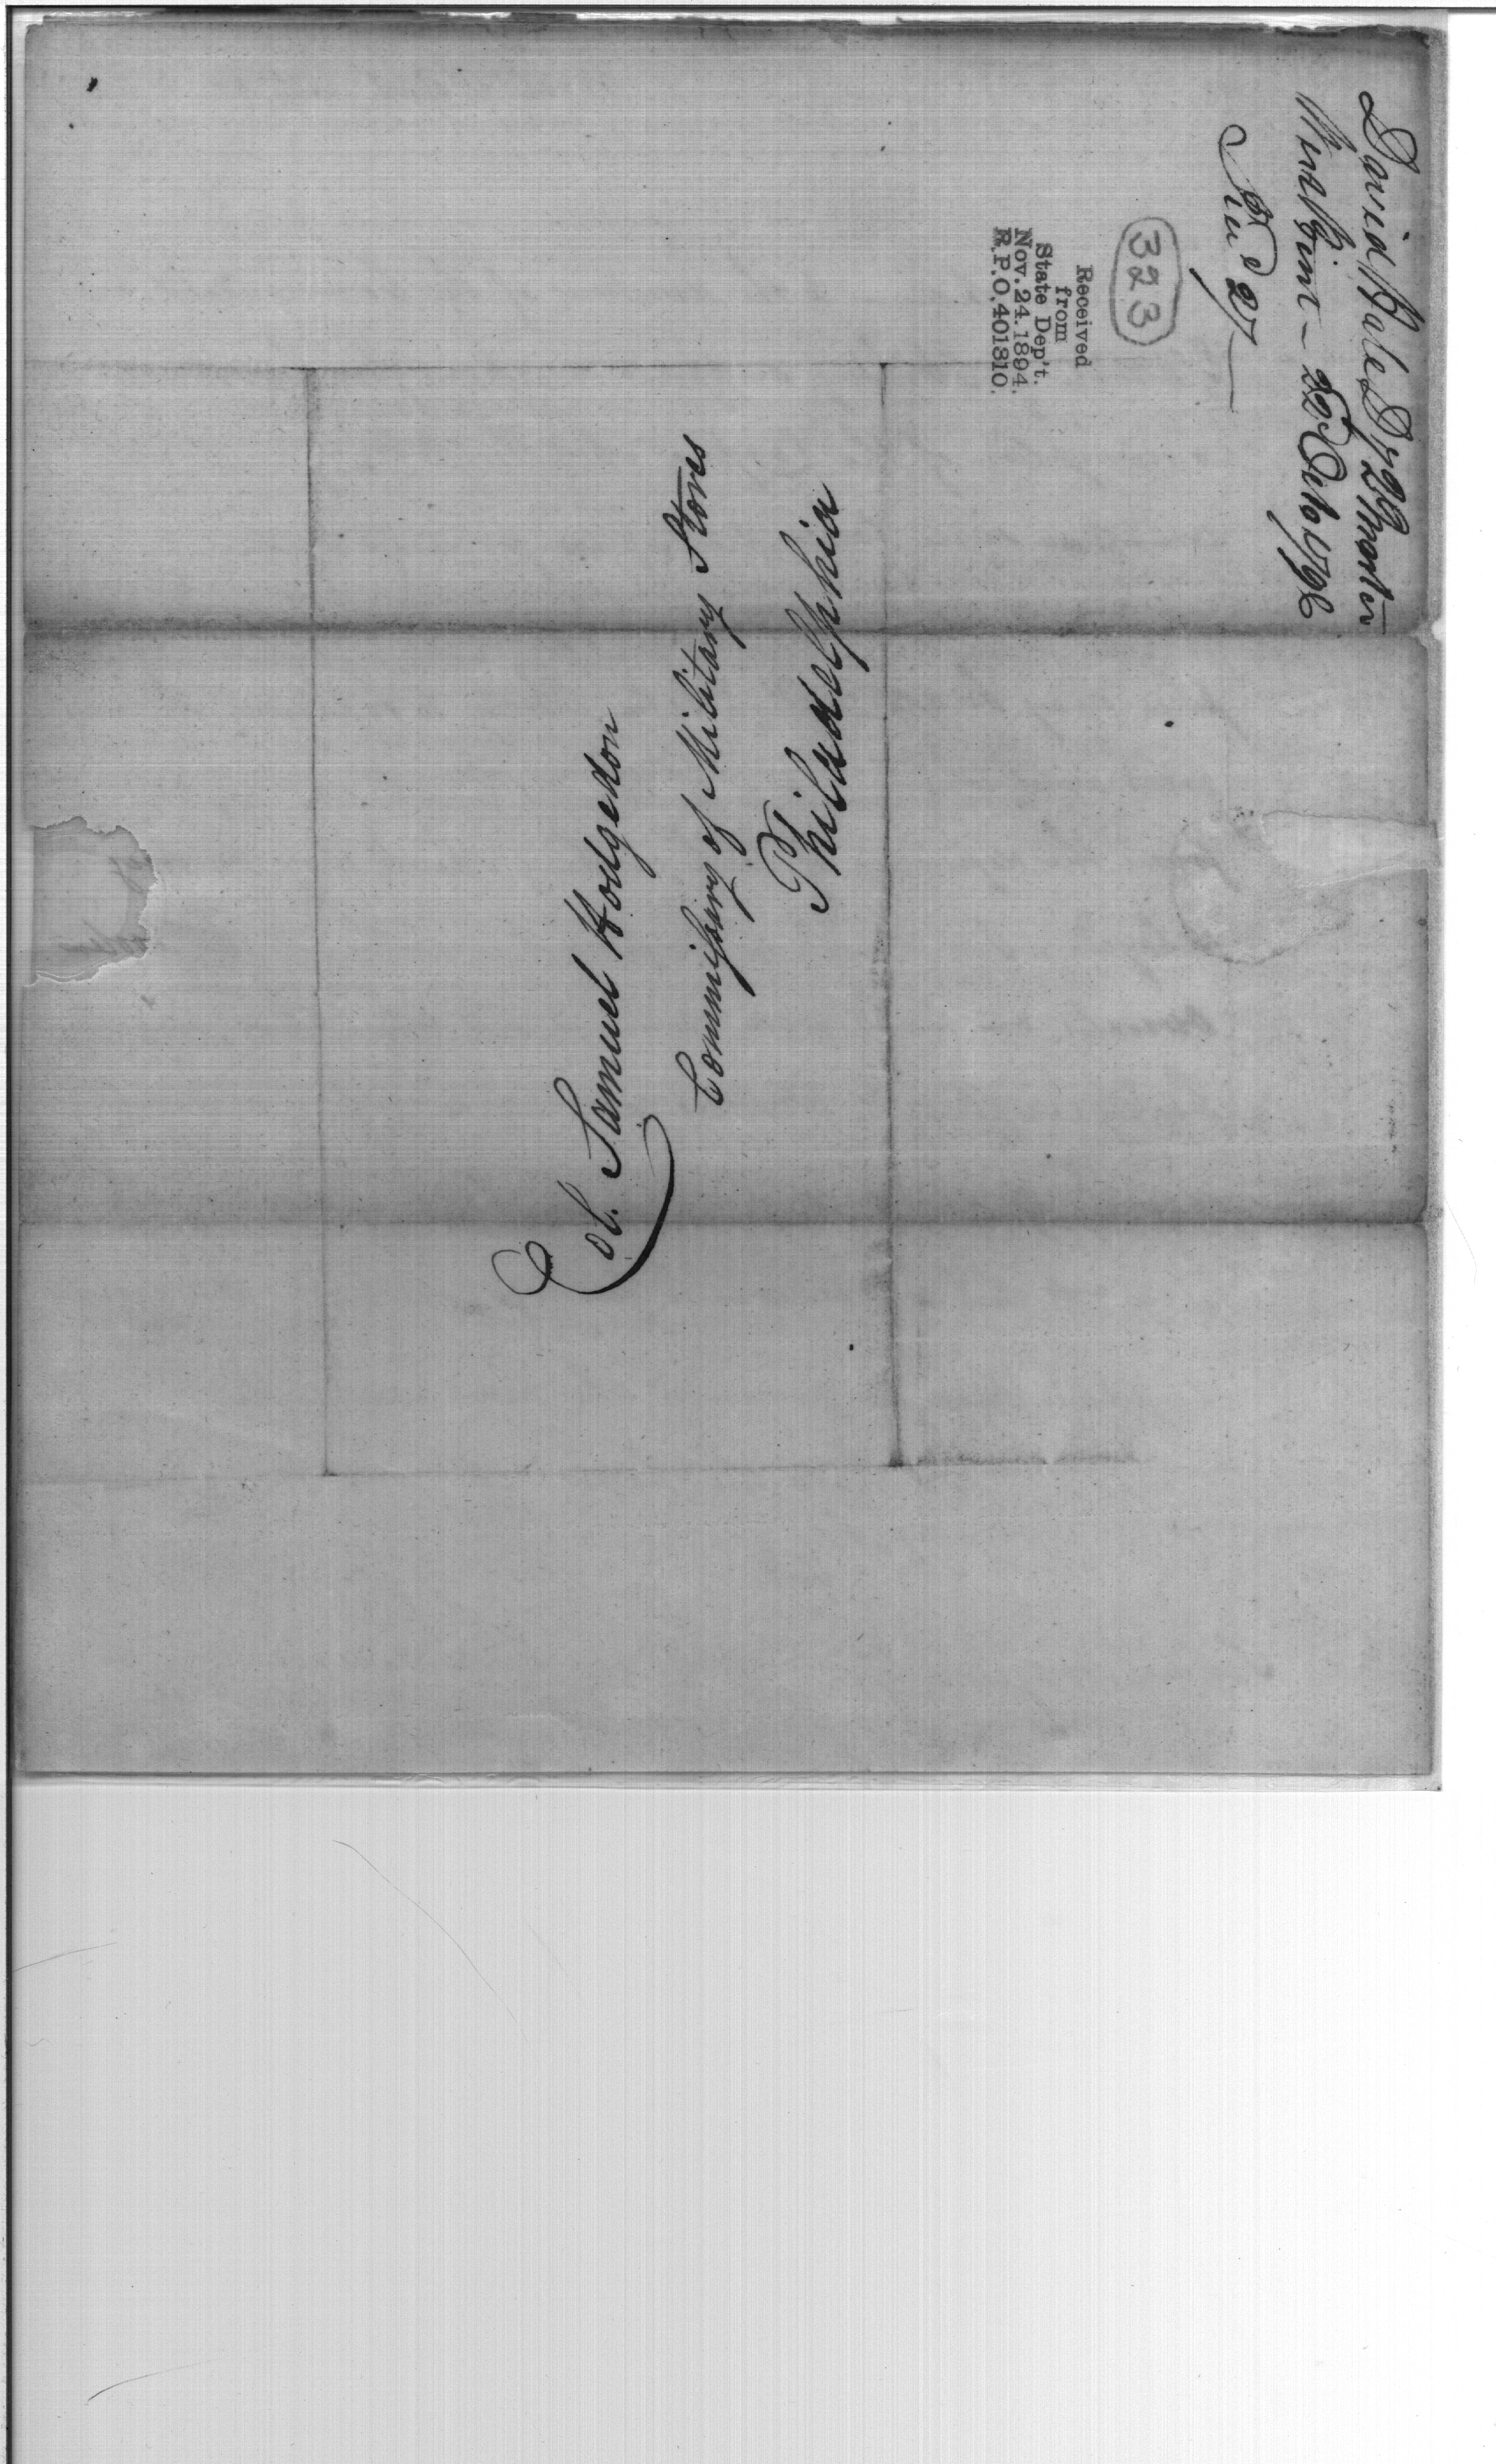 David Hale D. Q. Master
West Point - 22d Octo. 1796
Recd 27
323
Received
from
State Dep't.
Nov. 24. 1894.
R.P.O. 401310.
Col. Samuel Hodgedon
Commissary of Military Stores
Philadelphia